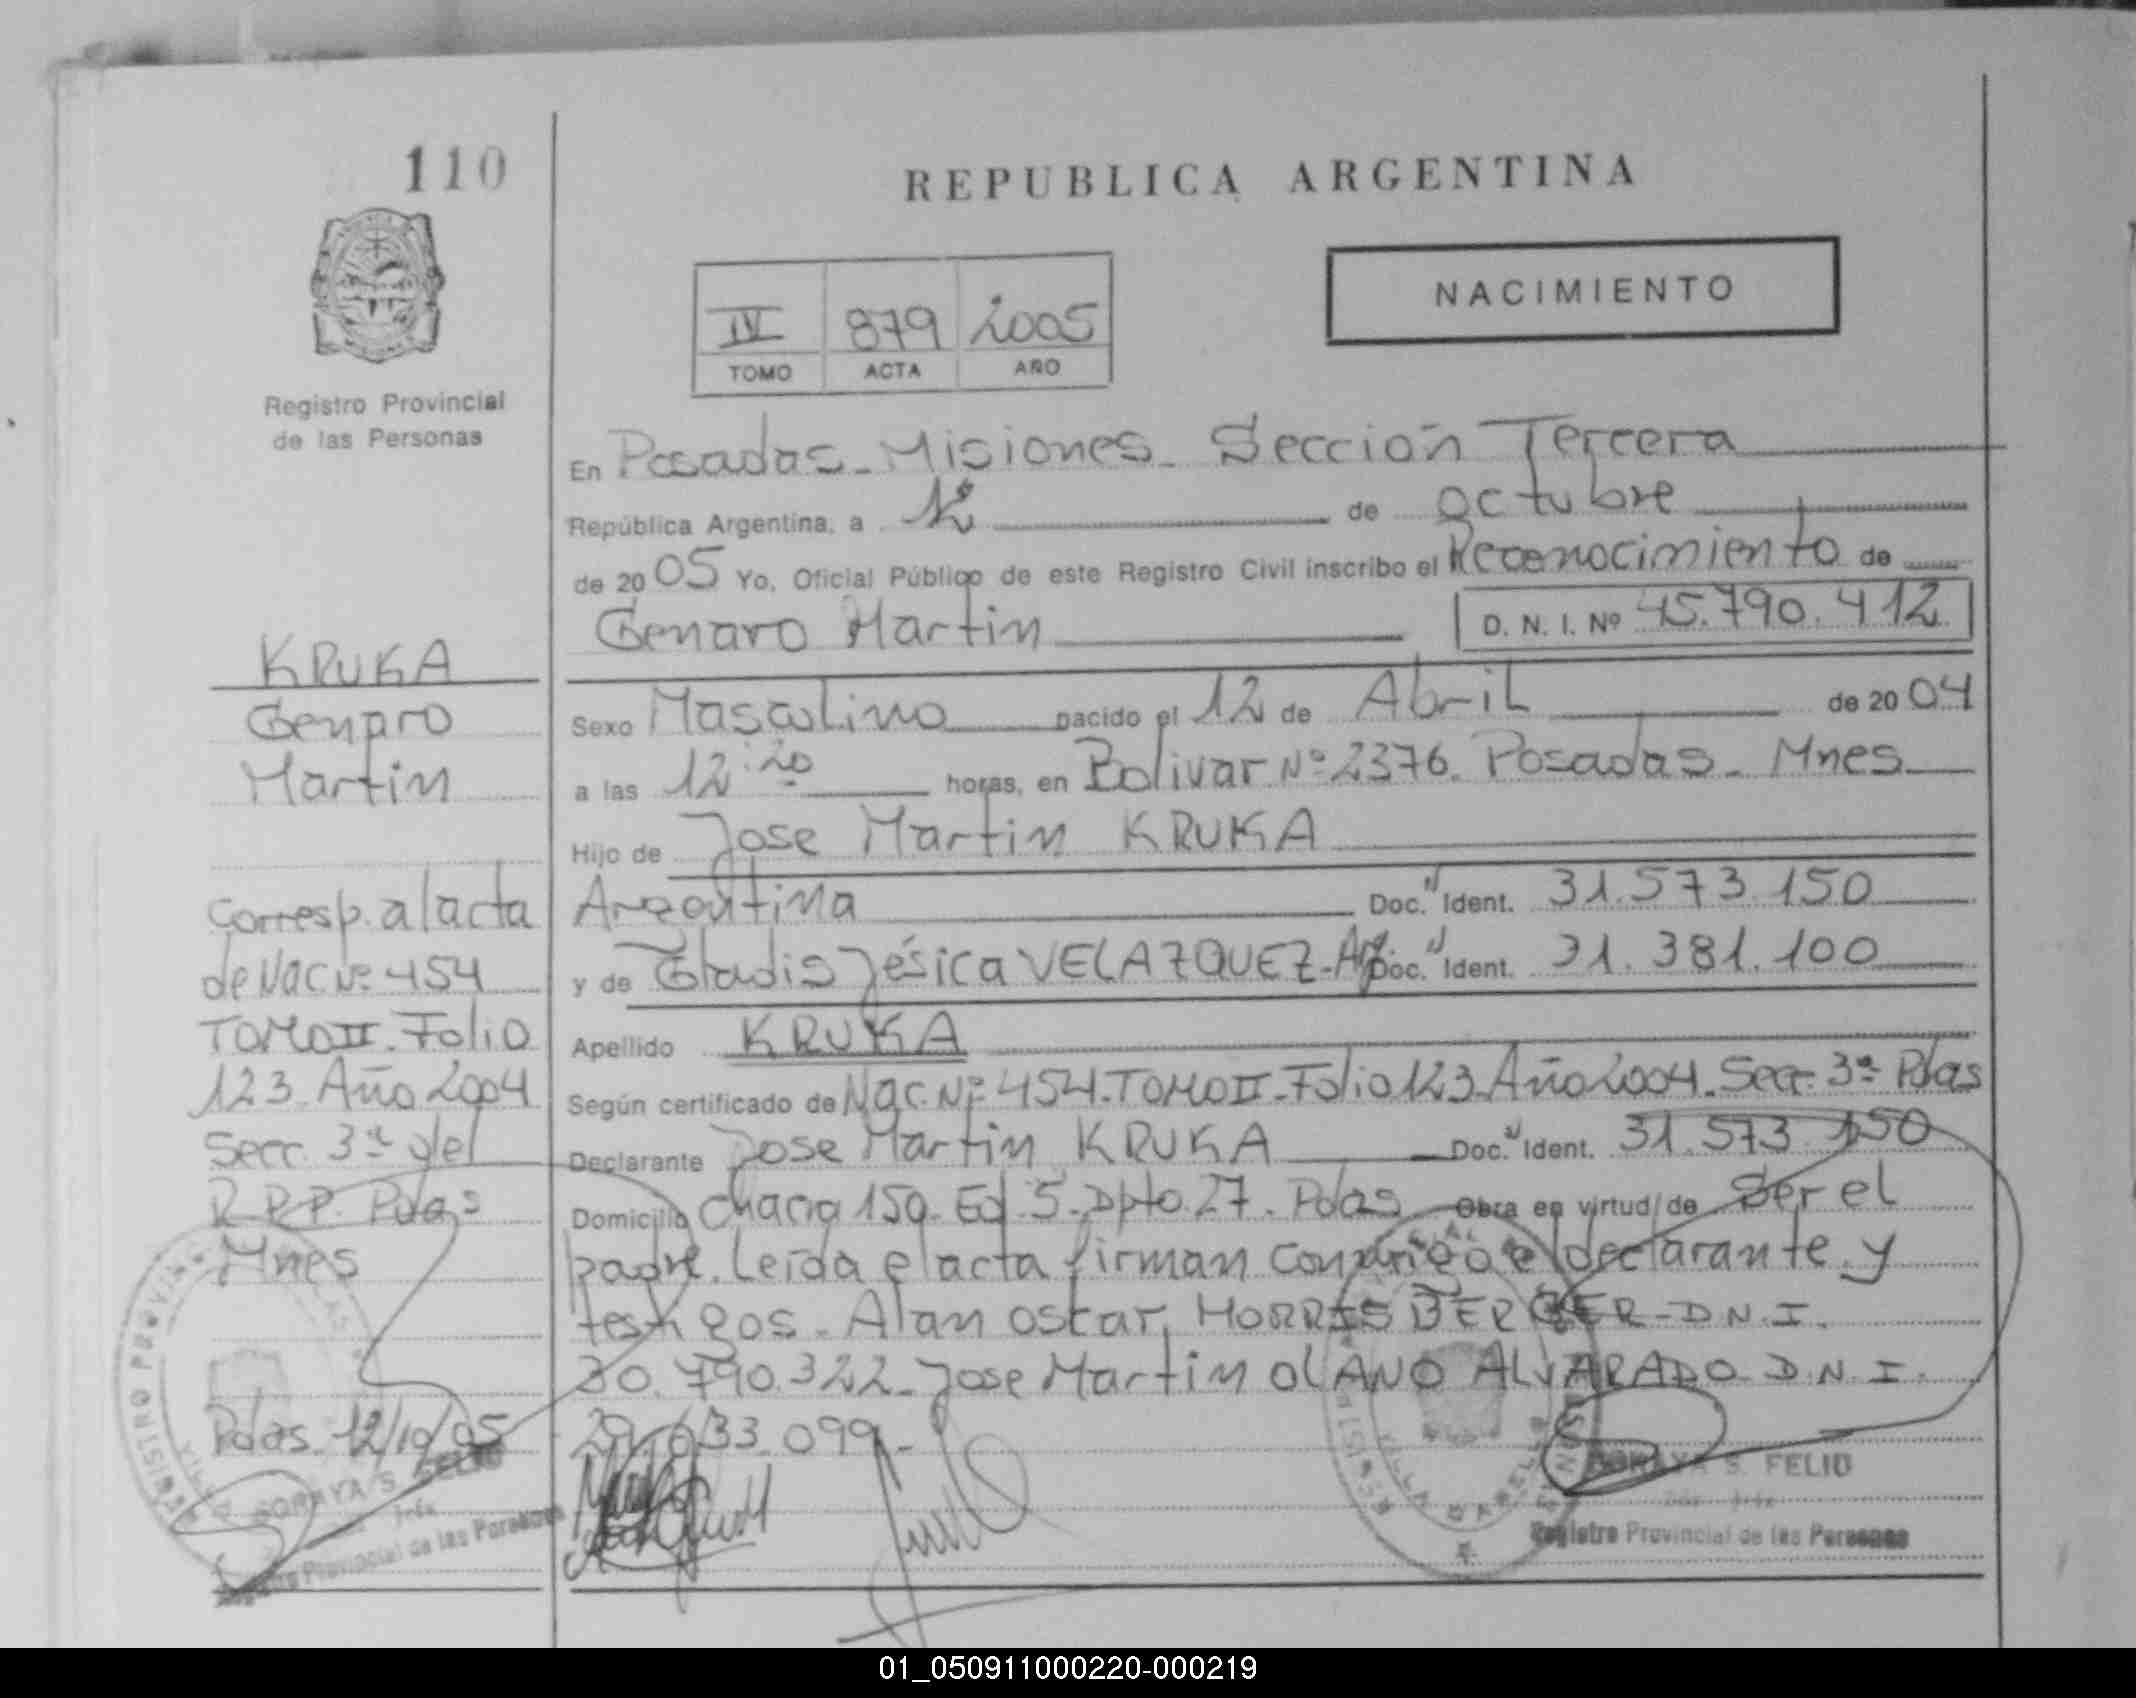 110
REPUBLICA ARGENTINA
NACIMIENTO
IV 879 2005
TOMO ACTA AÑO
Registro Provincial
de las Personas
En Posadas - Misiones - Sección Tercera
República Argentina, a 12 de octubre
de 2005 Yo, Oficial Público de este Registro Civil inscribo el Reconocimiento de
Genaro Martin D. N. I. Nº 45.790.412
KRUKA
Genaro
Martin
Sexo Masculino nacido el 12 de Abril de 2004
a las 12:20 horas, en Bolivar Nº 2376. Posadas - Mnes
Hijo de Jose Martin KRUKA
Argentina Doc. Ident. 31.573.150
y de Gladis Jésica VELAZQUEZ - Arg. Doc. Ident. 31.381.100
Apellido KRUKA
Según certificado de Nac. Nº 454 - TOMO II - Folio 123 - Año 2004 - Secc. 3ª Pdas
Declarante Jose Martin KRUKA Doc. Ident. 31.573.150
Domicilio Chacra 150 - Ed. 5 - Dpto. 27 - Pdas Obra en virtud de Ser el
padre. Leída el acta firman conmigo el declarante y
testigos - Alan Oscar MORRIS BERGER - D.N.I.
30.790.322 - Jose Martin OLANO ALVARADO D.N.I.
29.633.099 -
Corresp. al acta
de Nac Nº 454
TOMO II - Folio
123 - Año 2004
Secc. 3ª del
R.P.P. Pdas
Mnes
Pdas 12/10/05
SORAYA S. FELIU
Provincial de las Personas
SORAYA S. FELIU
Registro Provincial de las Personas
01_050911000220-000219